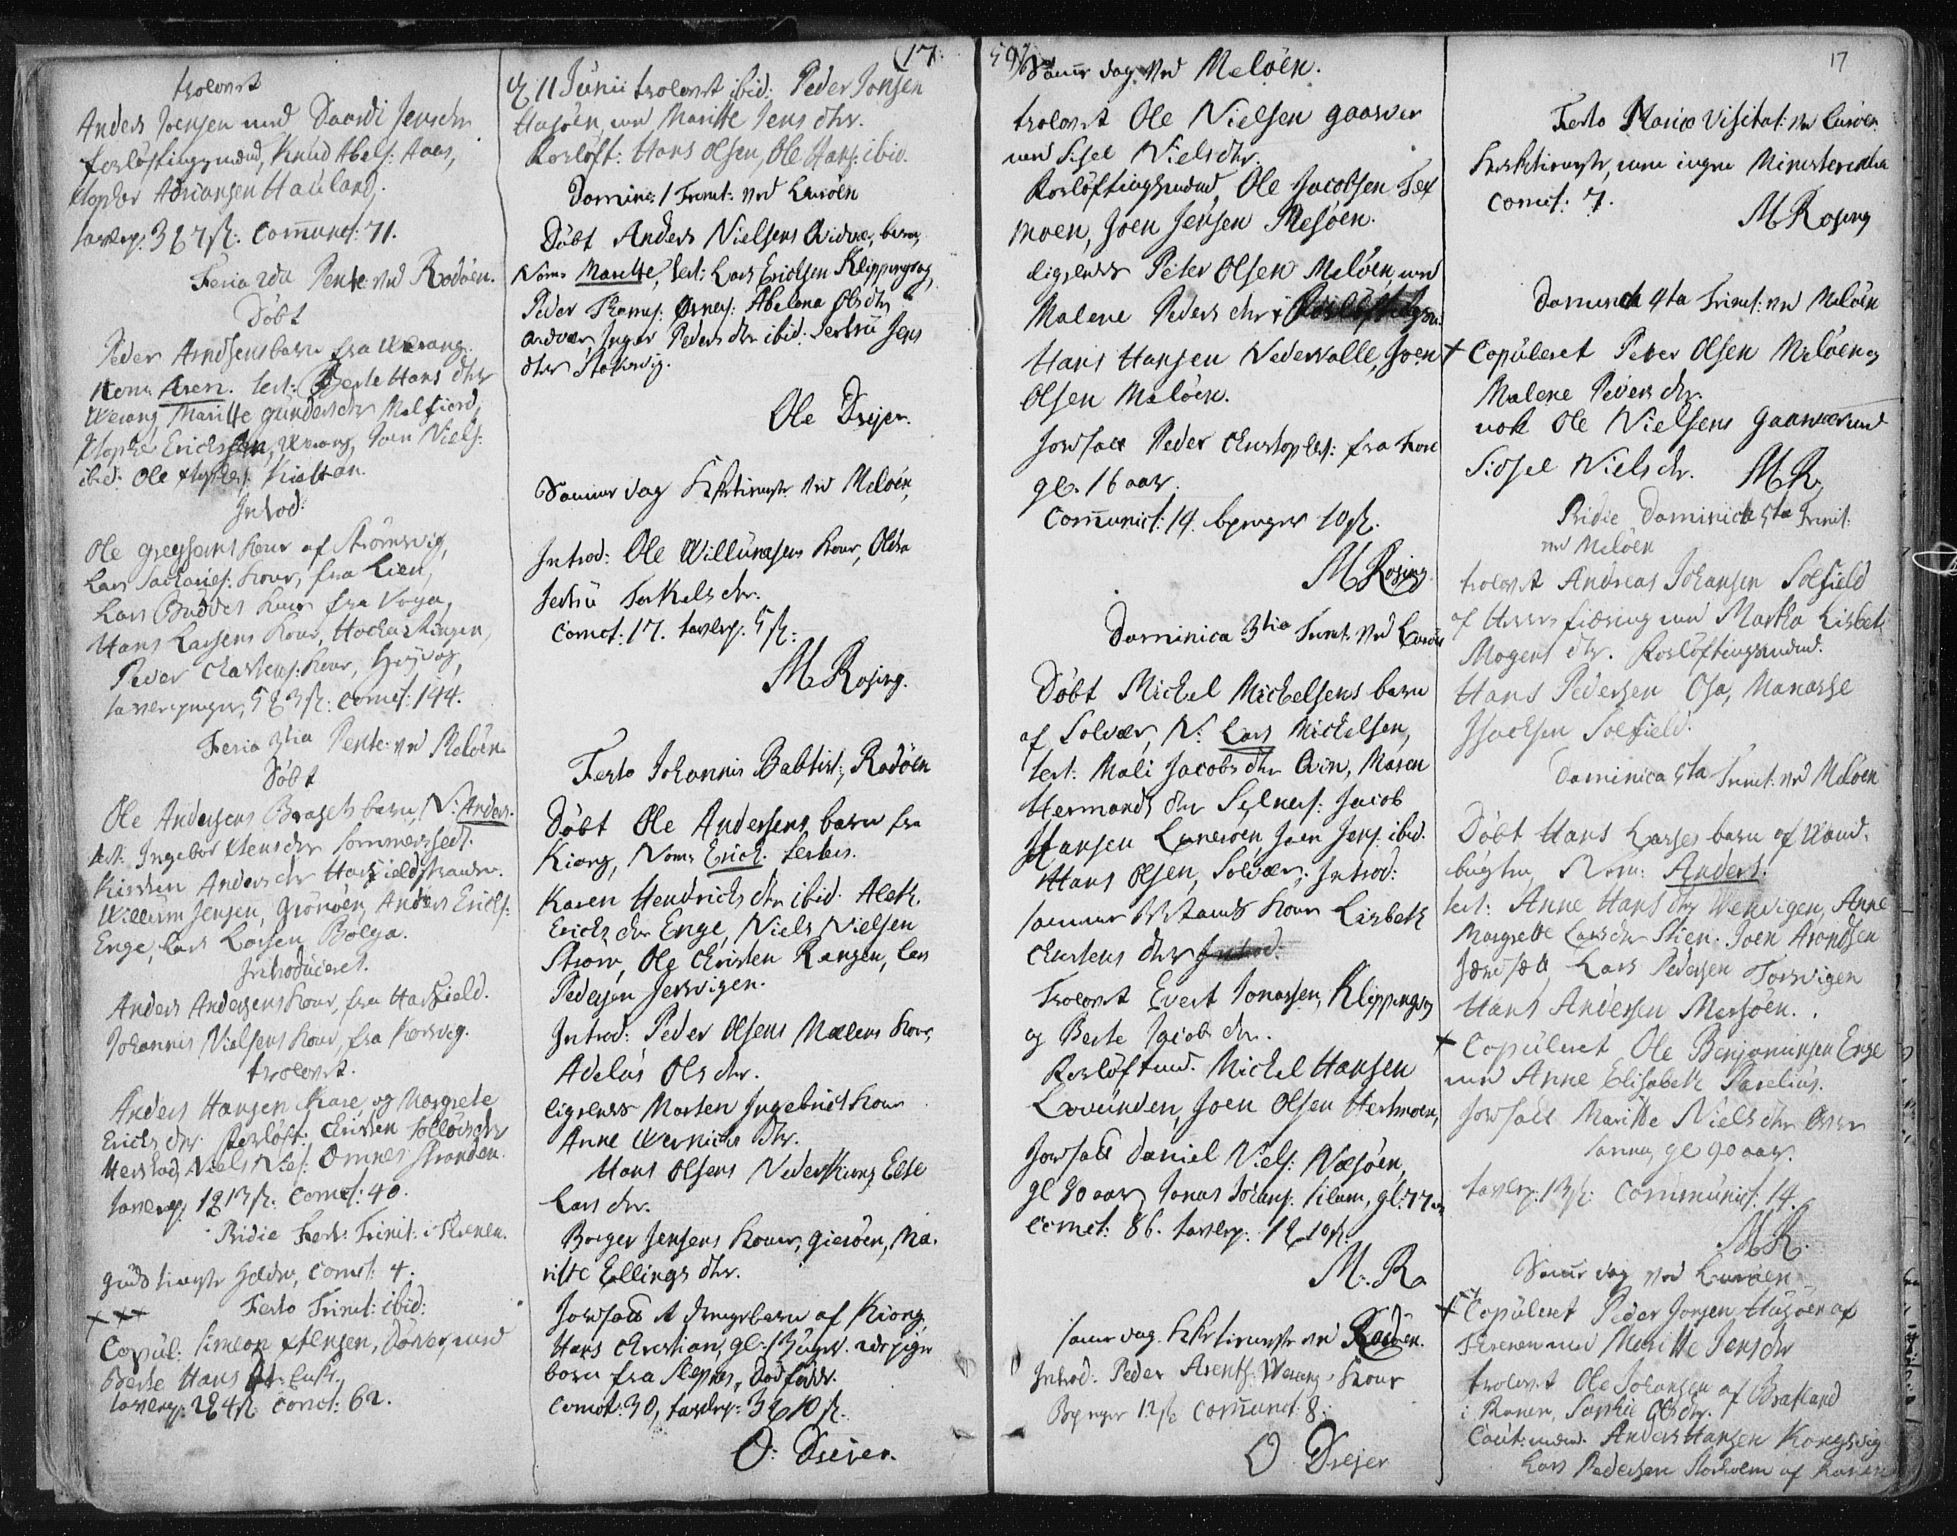 trolovet
Anders Joensen med Daardi Jensdr
forløftingsmænd, Knud Abels: Aas,
Adriansen Hauland.
tavlep: 3 # 7 sk. Communct: 71.
Feria 2da Pente: ved Rødøen.
Døbt
Peder Arndsens barn fra Werang.
Nom: Aren. test: Berte Hans dtr
Werang, Maritte Gundersdtr Melfiord,
Ericksen, Werang, Joen Niels:
ibid: Ole
Introd:
Ole Gregersens Kone af Strømsvig,
Lars Zacharies: Kone, fra Lien,
Lars Buddes Kone fra Woga,
Hans Larsens Kone,
Peder Christens: Kone,
tavlepenger, 5 # 3 sk: Comct: 144.
Feria 3tia Pente: ved Meløen.
Døbt
Ole Andersens barn, N: Anders.
test: Ingebor Jensdtr Sommersædt.
Kirsten Andersdtr
Willum Jensen, Grønøen, Anders Ericks:
Enge, Lars Larsen Bolga.
Introduceret.
Anders Andersens Kone, fra Hasfield.
Johannis Nielsens Kone, fra Korsvig.
trolovet.
Anders Hansen og Margrete
Ericks dtr: forløft: Christen
Niels Omnes Stranden.
tavlep: 1 # 13 sk: Comct: 40.
Pridie Fest: Trinit: i Trenen.
Guds tieneste holden, Comct: 4.
Festo Trinit: ibid:
Copul: Simeon Jensen, Dønes, med
Berte Hans
tavlep: 2 # 4 sk. Comct: 62.
17.
d 11 Junii trolovet ibid: Peder Jonsen
Husøen, med Maritte Jens dtr.
Forløft: Hans Olsen, Ole Hans: ibid.
Dominic: 1 Trinit: ved Lurøen
Døbt Anders Nielsens barn,
Nom: Maritte, test: Lars Ericksen Klippingvog,
Peder Ørnes: Abelona Olsdtr
Inger Peders dtr ibid: Jertru Jens
dtr Stokvig.
Ole Drejer.
Samme dag tieneste ved Meløen,
Introd: Ole Willumsens Kone, Oldra
Jertru Torkelsdtr.
Comct: 17. tavlep. 5 sk:
M Rosing.
Festo Johannis Babtist:, Rødøen
Døbt Ole Andersens barn fra
Kiong, Nom: Erick. testes.
Karen Hendrichsdtr ibid: Aleth.
Ericks dtr Enge, Niels Nielsen
Strøm, Ole Christen Rangen, Lars
Pedersen Jervigen.
Introd: Peder Olsens Kone,
Adelus Ols dtr.
ligeledes Morten Ingebrict Kone
Anne Wernichs dtr.
Hans Olsens Nederkiong Else
Lars dtr.
Borger Jensens Kone, Gierøen, Ma-
ritte Ellings dtr.
Jordfæst et drengebarn af Kiong,
Hans Christian, gl: 13 uger.
barn fra Slepnes, Dødfødt.
Comct: 30, tavlep: 3 # 10 sk.
O: Drejer.
Samme dag ved Meløen.
trolovet Ole Nielsen Gaasvær
med Sisel Nielsdtr.
Forløftingsmænd, Ole Jacobsen Tex
moen, Joen Jensen Mesøen.
ligeledes Peter Olsen Meløen med
Malene Peders dtr
Hans Hansen Nedervalle, Joen
Olsen Meløen.
Jordfæst Peder Christophes: fra
gl. 16 aar.
Communict: 14. bpenger 10 sk.
M Rosing.
Dominica 3tia Trinit: ved Lurøen
Døbt Michel Michelsens barn
af Solvær, N: Lars Michelsen,
test: Mali Jacobs dtr Qvin, Maren
Hermands dtr Selnes: Jacob
Hansen Lurøen, Joen Jens: ibid:
Hans Olsen, Solvær. Introd:
samme Mands Kone Lisbeth
Christens dtr
Trolovet Evert Jonassen, Klippingvog
og Berte Jacobs dtr.
Forløftmd. Michel Hansen
Lovunden, Joen Olsen Hestmoen,
Jordfæst Daniel Niels: Næsøen,
gl 90 aar, Jonas Johans: Silam, gl: 77 aar
Comct: 86. tavlep: 1 # 10 sk.
M: Ro
samme dag tieneste ved Rødøen.
Introd: Peder Arents: Werang: Kone
Bpenger 12 sk Communct: 8:
O Drejer
17
Festo Mariæ Visitat: ved Lurøen.
tieneste, men ingen Ministerialia
Comct: 7.
M Rosing
Dominica 4ta Trinit: ved Meløen
+ Copuleret Peter Olsen Meløen og
Malene Peders dtr.
nok Ole Nielsens Gaasvær med
Sidsel Nielsdtr. M R.
Pridie Dominica 5ta Trinit:
ved Meløen
trolovet Andreas Johansen Solfield
af fiering med Martha Lisbet:
Mogens dtr. Forløftingsmænd.
Hans Pedersen Osa, Manasse
Isachsen Solfield.
Dominica 5ta Trinit: ved Meløen
Døbt Hans Larses barn af
bugten, Nom: Anders.
test: Anne Hans dtr Anne
Margrette Larsdtr Stien. Joen Arondsen
Lars Pedersen Torsvigen
Hans Andersen Mesøen.
+ Copuleret Ole Benjaminsen Enge
med Anne Elisabeth Parelius.
Jordfæst Maritte Niels dtr
gl 90 aar.
tavlep: 13 sk: Communict: 14.
M R.
Samme dag ved Lurøen
+ Copuleret Peder Jonsen Husøen af
Trenen med Maritte Jensdtr
trolovet Ole Johansen af Bratland
i Ranen, Sophie Olsdtr.
Caut: mænd: Anders Hansen Kongsvig
Lars Pedersen Storholm af Ranen